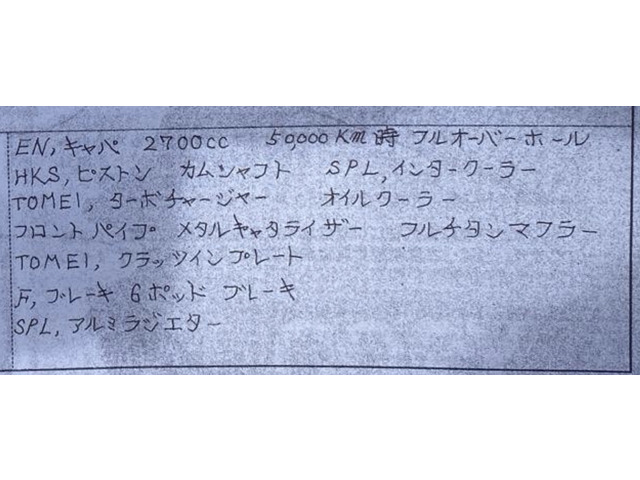 EN,キャパ 2700cc 50,000Km時 フルオーバーホール
HKS,ピストン カムシャフト SPL,インタークーラー
TOMEI,ターボチャージャー オイルクーラー
フロントパイプ メタルキャタライザー フルチタンマフラー
TOMEI,クラッツインプレート
F,ブレーキ 6ポッド ブレーキ
SPL,アルミラジエター